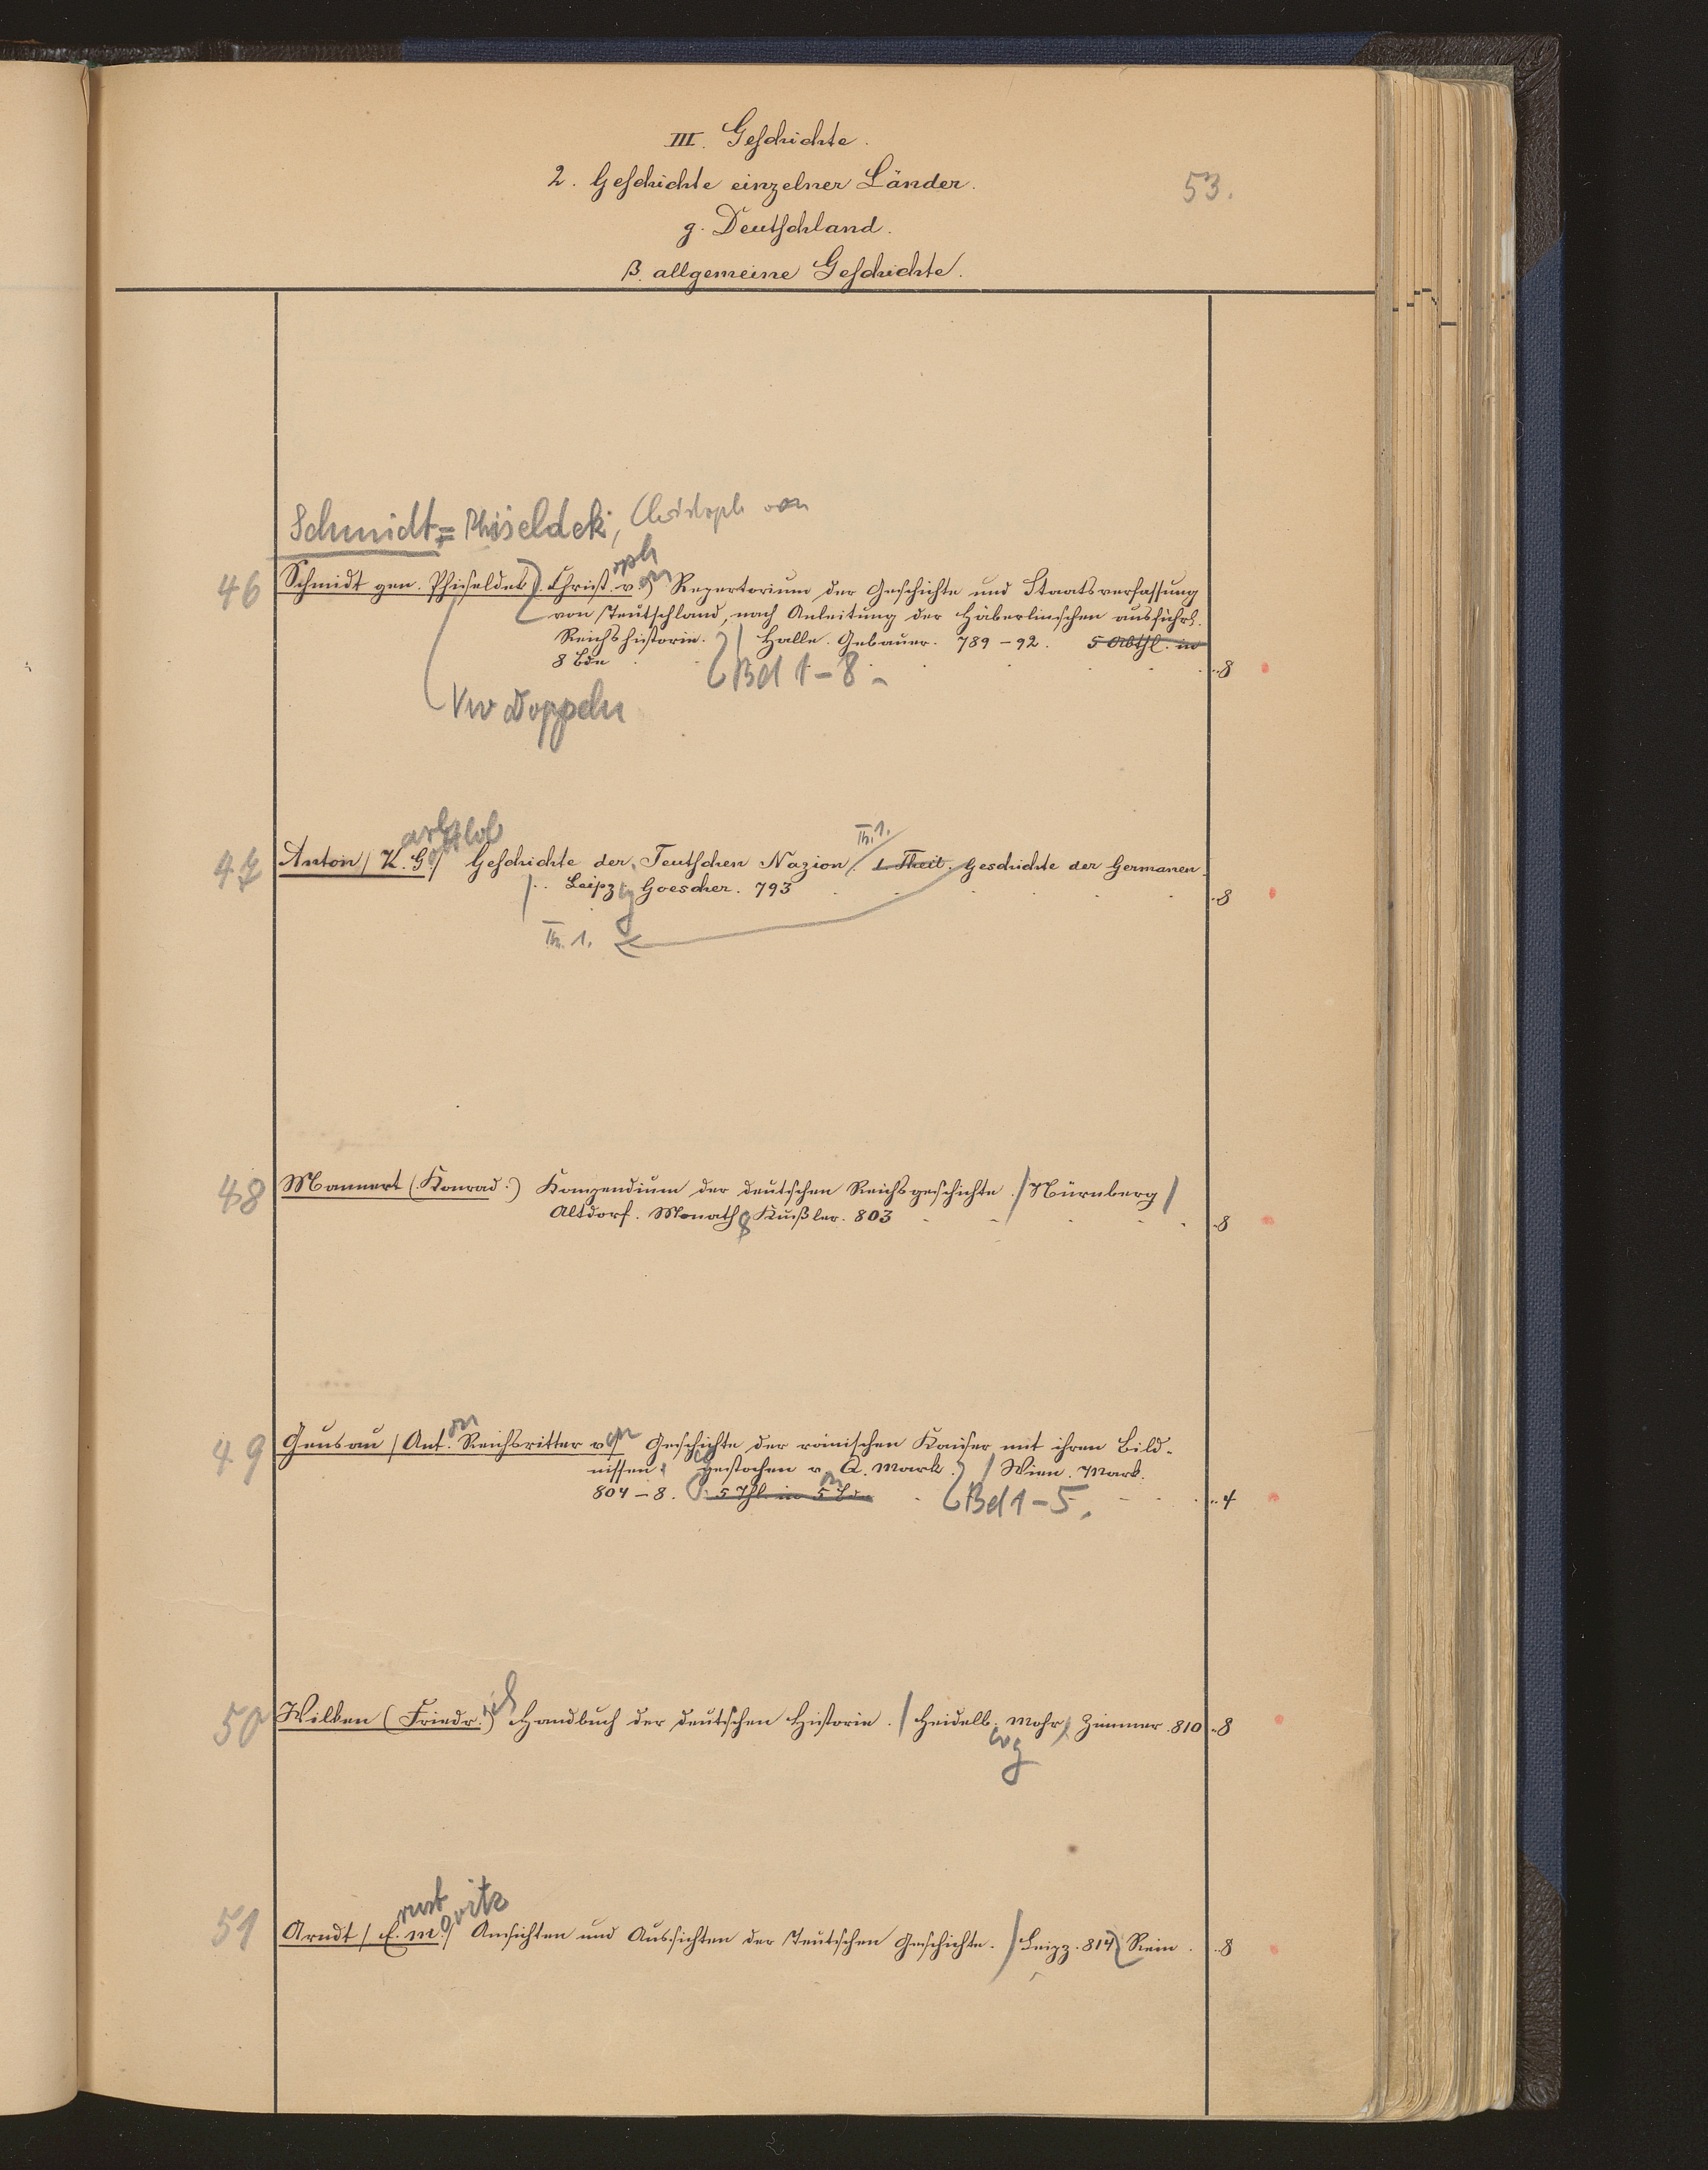 III. Geschichte.
2. Geschichte einzelner Länder.
53.
g. Deutschland.
β. allgemeine Geschichte.
Schmidt = Phiseldek, Christoph von
46 Schmidt gen. Phiseldek). Christ.oph v.on) Repertorium der Geschichte und Staatsverfassung
von Teutschland, nach Anleitung der Häberlinschen ausführl.
Reichshistorie. / Halle. Gebauer. 789-92. 5 Abthl. in
8 Bde Bd 1-8. 8
Vw Doppeln
47 Anton / K.arl G.ottlob / Geschichte der Teutschen Nazion / Th. 1. 1. Theil. Geschichte der Germanen.
/ Leipzig Goeschen. 793 8
Th. 1.
48 Mannert (Konrad.) Kompendium der deutschen Reichsgeschichte. / Nürnberg /
Altdorf. Monath & Kußler. 803 8
49 Geusau / Ant.on Reichsritter von Geschichte der römischen Kaiser mit ihren Bild-
nissen, gestochen v. Q. Mark. / Wien. Mark.
804-8. 5 Thl. in 5 Bdn Bd 1-5. 4
50 Wilken (Friedr.ich) Handbuch der deutschen Historie. / Heidelb.erg Mohr, Zimmer. 810 8
51 Arndt / E.rnst M.oritz / Ansichten und Aussichten der Teutschen Geschichte. / Leipz. 814 Rein. 8